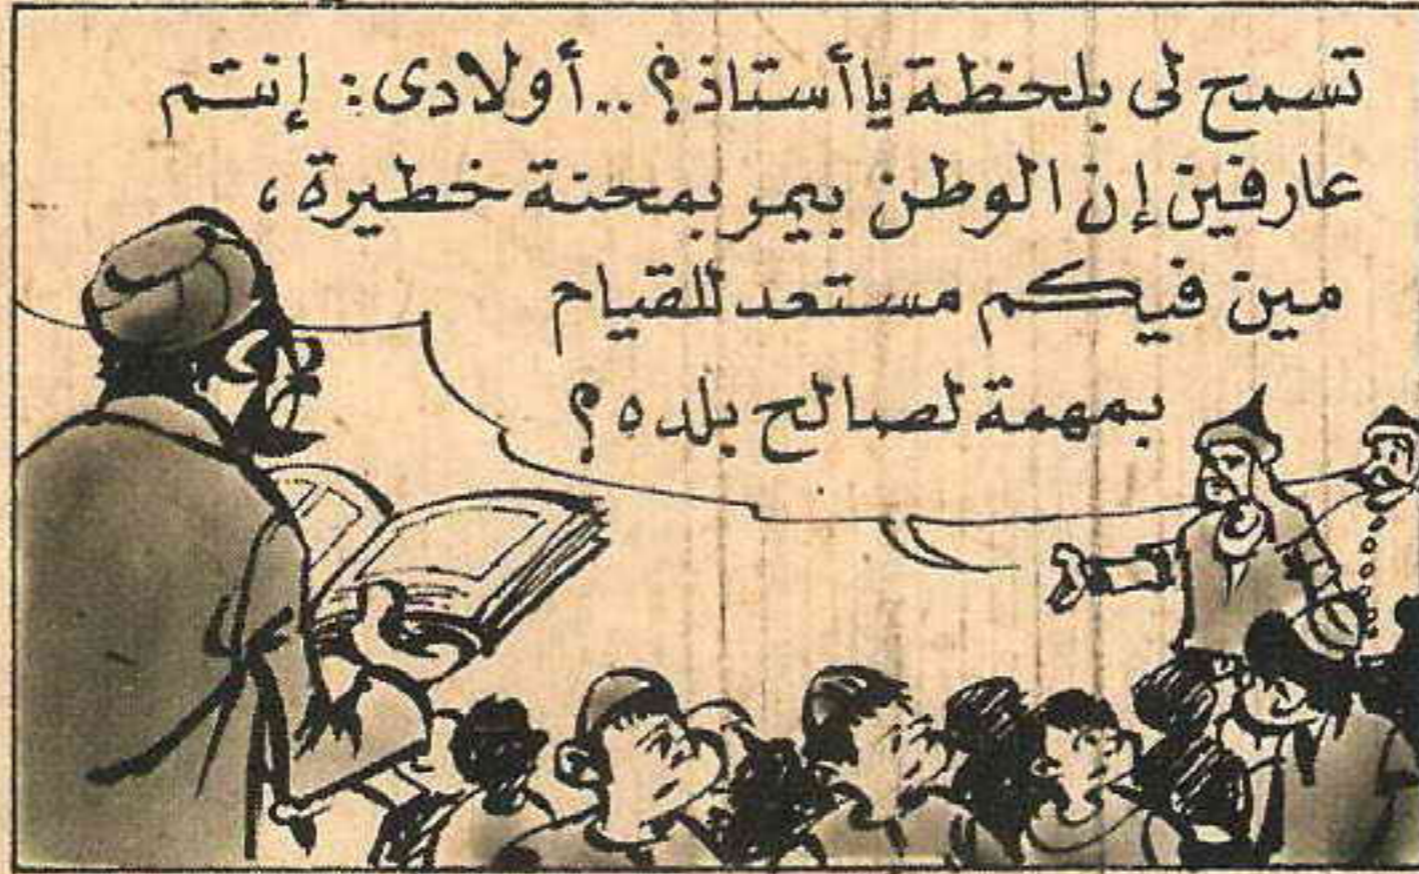 تسمح لى بلحظة ياأستاذ؟ ..أولادى: إنتم
عارفين إن الوطن بيمر بمحنة خطيرة،
مين فيكم مستعد للقيام
بمهمة لصالح بلده؟